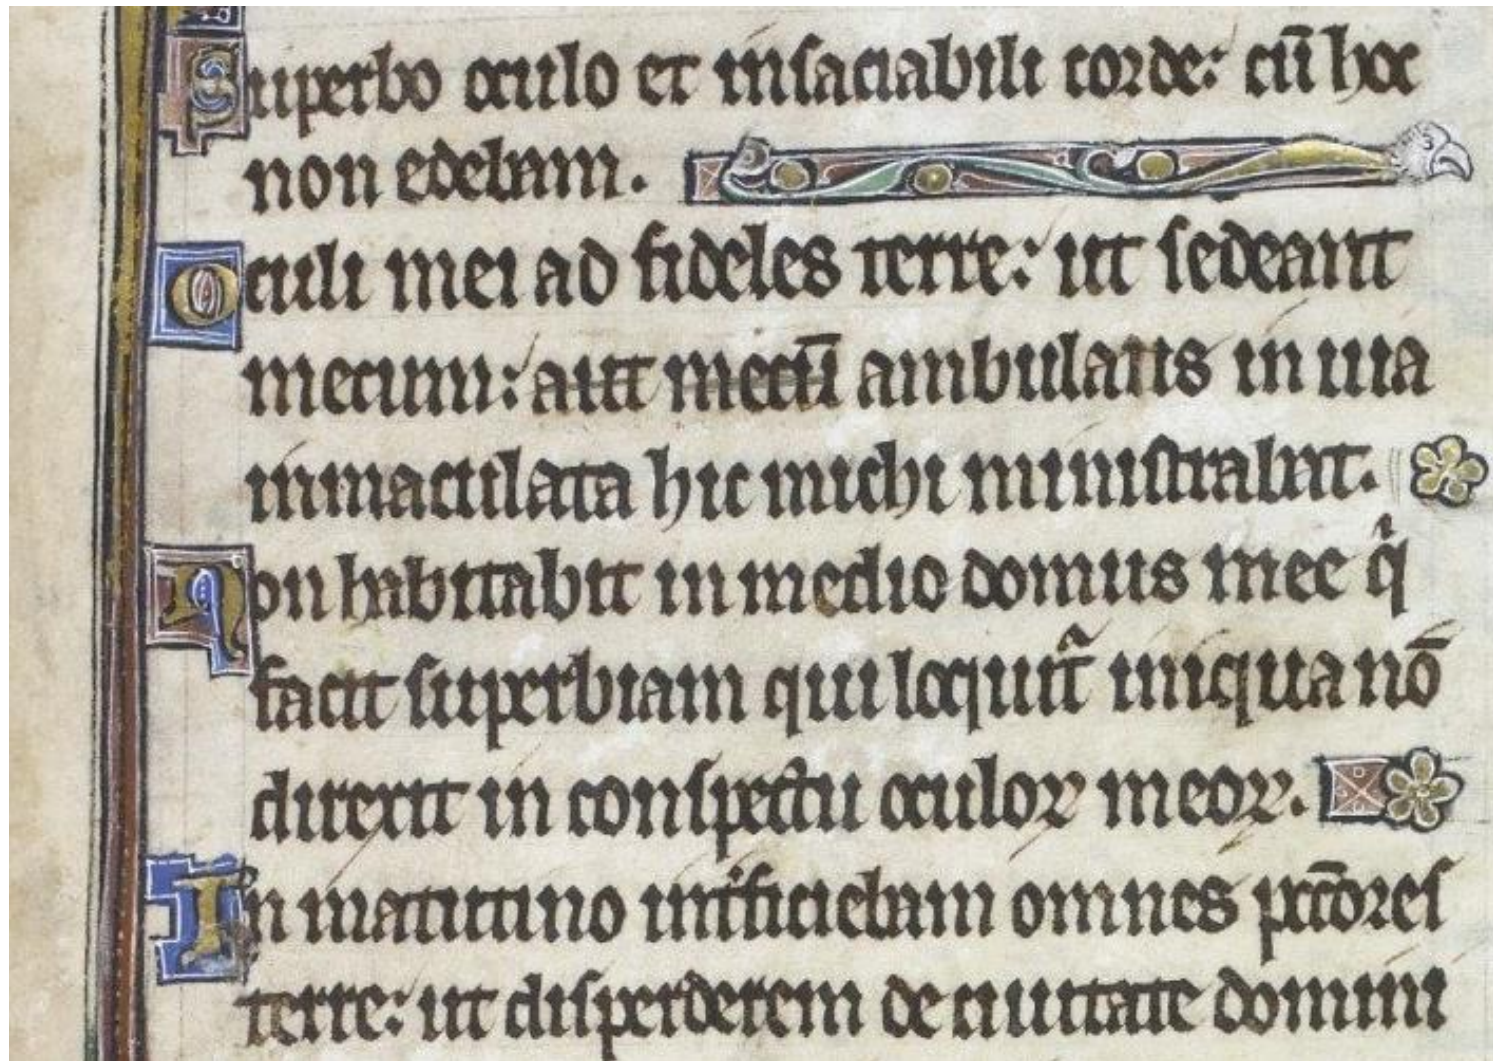 Superbo oculo et insaciabili corde: cū hoc
non edebam.
Oculi mei ad fideles terre: ut sedeant
mecum: aut mecū ambulans in uia
inmaculata hic michi ministrabat.
Non habitabit in medio domus mee qͥ
facit superbiam qui loquit᷑ iniqua nō
direxit in conspectu oculoꝝ meoꝝ.
In matutino int͛ficiebam omnes pcc̄ores
terre: ut disperderem de ciuitate domini